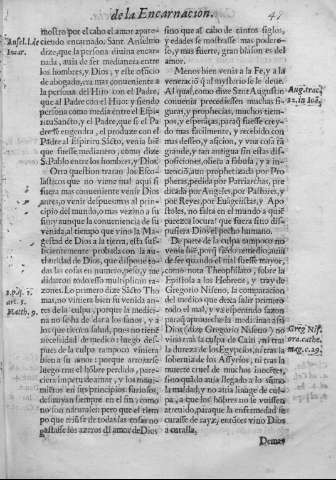 de la Encarnacion.
47
mostro por el cabo el amor apare-
ciendo encarnado. San Anselmo
dize, que la persona diuina encar-
nada, auia de ser medianera entre
los hombres, y Dios, y este oficio
de abogado, era mas conueniente a
la persona del Hijo con el Padre,
que al Padre con el Hijo: y siendo
persona como media entre el Espi-
ritu Santo, y el Padre, que si el Pa-
dre le engendra, el produze con el
Padre al Espiritu Santo, venia bié
que fuesse medianero, como dize
S. Pablo entre los hombres, y Dios
Otra question tratan los Esco-
lasticos que no viene mal aqui si
fuera mas conueniente venir Dios
antes, o venir despues mas al princi-
pio del mundo, o mas vezino a su
fin: y aunque la conueniencia de su
venida, al tiempo que vino la Ma-
gestad de Dios a la tierra, esta suf-
ficientemente probada con la au-
toridad de Dios, que dispone to-
das las cosas en numero, peso, y me
dida con todo esso multiplican ra-
zones. Lo primero dize Sãto Tho
mas, no viniera bien su venida an-
tes de la culpa, porque la medici-
na no se ha de dar a los sanos, y a
los que tienen salud, pues no tiené
necesidad de medico: luego des-
pues de la culpa tampoco viniera
bien a su amor; porque arrojarse
luego tras el hõbre perdido, pare-
ciera impetu de amar, y los movi-
mientos en sus principios furiosos,
desmayan siempre en el fin; como
no son naturales: pero que el tiem
po que enfria de todas las cosas no
gastasse los azeros dl amor de Dios
sino que al cabo de tantos siglos,
y edades se mostrasse mas podero-
so, y mas fuerte, gran blason es del
amor.
Menos bien venia a la Fe, y a la
veneraciõ q̃ al mysterio se le deue.
Al qual, como dize Sant Augustin
conuenia precediessen muchas fi-
guras, y prophecias, muchos tiem-
pos, y esperãças, para q̃ fuesse crey-
do mas facilmente, y recebido con
mas desseo, y aficion, y vna cosa tã
grande, y tan antigua sin estas dis-
posiciones, ofrecia a fabula, y a in-
uenciõ, auiso prophetizada por Pro
phetas, pedida por Patriarchas, pre
dicada por Angeles, por Pastores, y
por Reyes, por Euãgelistas, y Apo
stoles, no falta en el mundo a quié
parezca locura: que fuera si no dis-
pusiera Dios el pecho humano.
De parte de la culpa tampoco no
venia bié, porq̃ si este remedio, auia
de ser quando el mal fuesse mayor,
como nota Theophilato, sobre la
Epistola a los Hebreos, y tray de
Gregorio Niseno, la comparacion
del medico que dexa salir primero
todo el mal, y va esperando sazon
para q̃ aproueche la medicina: assi
Dios (dize Gregorio Niseno) no
vino tras la culpa de Cain, ni tras
la dureza de los Egypcios, ni tras la
soberuia de los Assyrios, ni tras la
muerte cruel de muchos inocẽtes,
sino quãdo auia llegado a lo sũmo
la maldad, y no auia linage de cul-
pa, a que los hõbres no le vuiessen
atreuido, paraque la enfermedad se
curasse de rayz, entõces vino Dios
a curalla.
Demas
Ansel. l. de
Incar.
3. p. q. 1.
art. 5.
Matth. 9.
Aug. tract
32. in Ioã.
Greg. Nis.
ora. cathe.
mag. c. 29.